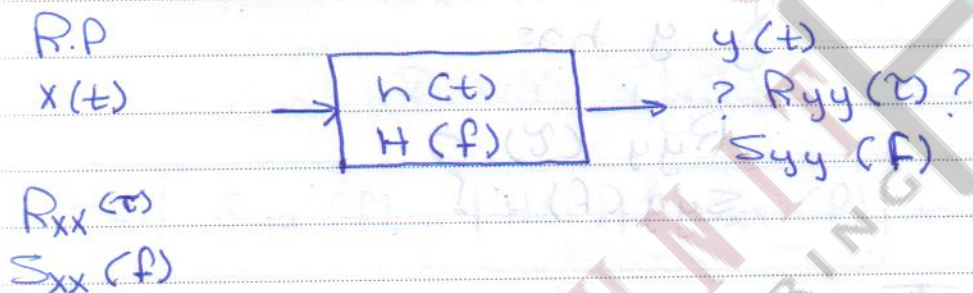 R.P
x(t)
h(t)
H(f)
y(t)
? Ryy(τ) ?
Syy(f)
Rxx(τ)
Sxx(f)